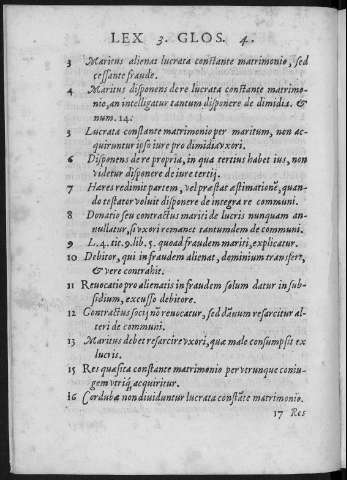 LEX 3. GLOS. 4.
3 Maritus alienat lucrata constante matrimonio, sed
cessante fraude.
4 Maritus disponens de re lucrata constante matrimo-
nio, an intelligatur tantum disponere de dimidia. &
num. 14.
5 Lucrata constante matrimonio per maritum, non ac-
quiruntur ipso iure pro dimidia vxori.
6 Disponens de re propria, in qua tertius habet ius, non
videtur disponere de iure tertij.
7 Hæres redimit partem, vel præstat æstimationē, quan-
do testator voluit disponere de integra re communi.
8 Donatio seu contractus mariti de lucris nunquam an-
nullatur, si vxori remanet tantumdem de communi.
9 L. 4. tit. 9. lib. 5. quoad fraudem mariti, explicatur.
10 Debitor, qui in fraudem alienat, dominium transfert,
& vere contrahit.
11 Reuocatio pro alienatis in fraudem solum datur in sub-
sidium, excusso debitore.
12 Contractus socij nō reuocatur, sed dānum resarcitur al-
teri de communi.
13 Maritus debet resarcire vxori, quæ male consumpsit ex
lucris.
15 Res quæsita constante matrimonio per vtrunque coniu-
gem vtriq; acquiritur.
16 Cordubæ non diuiduntur lucrata constāte matrimonio.
17 Res